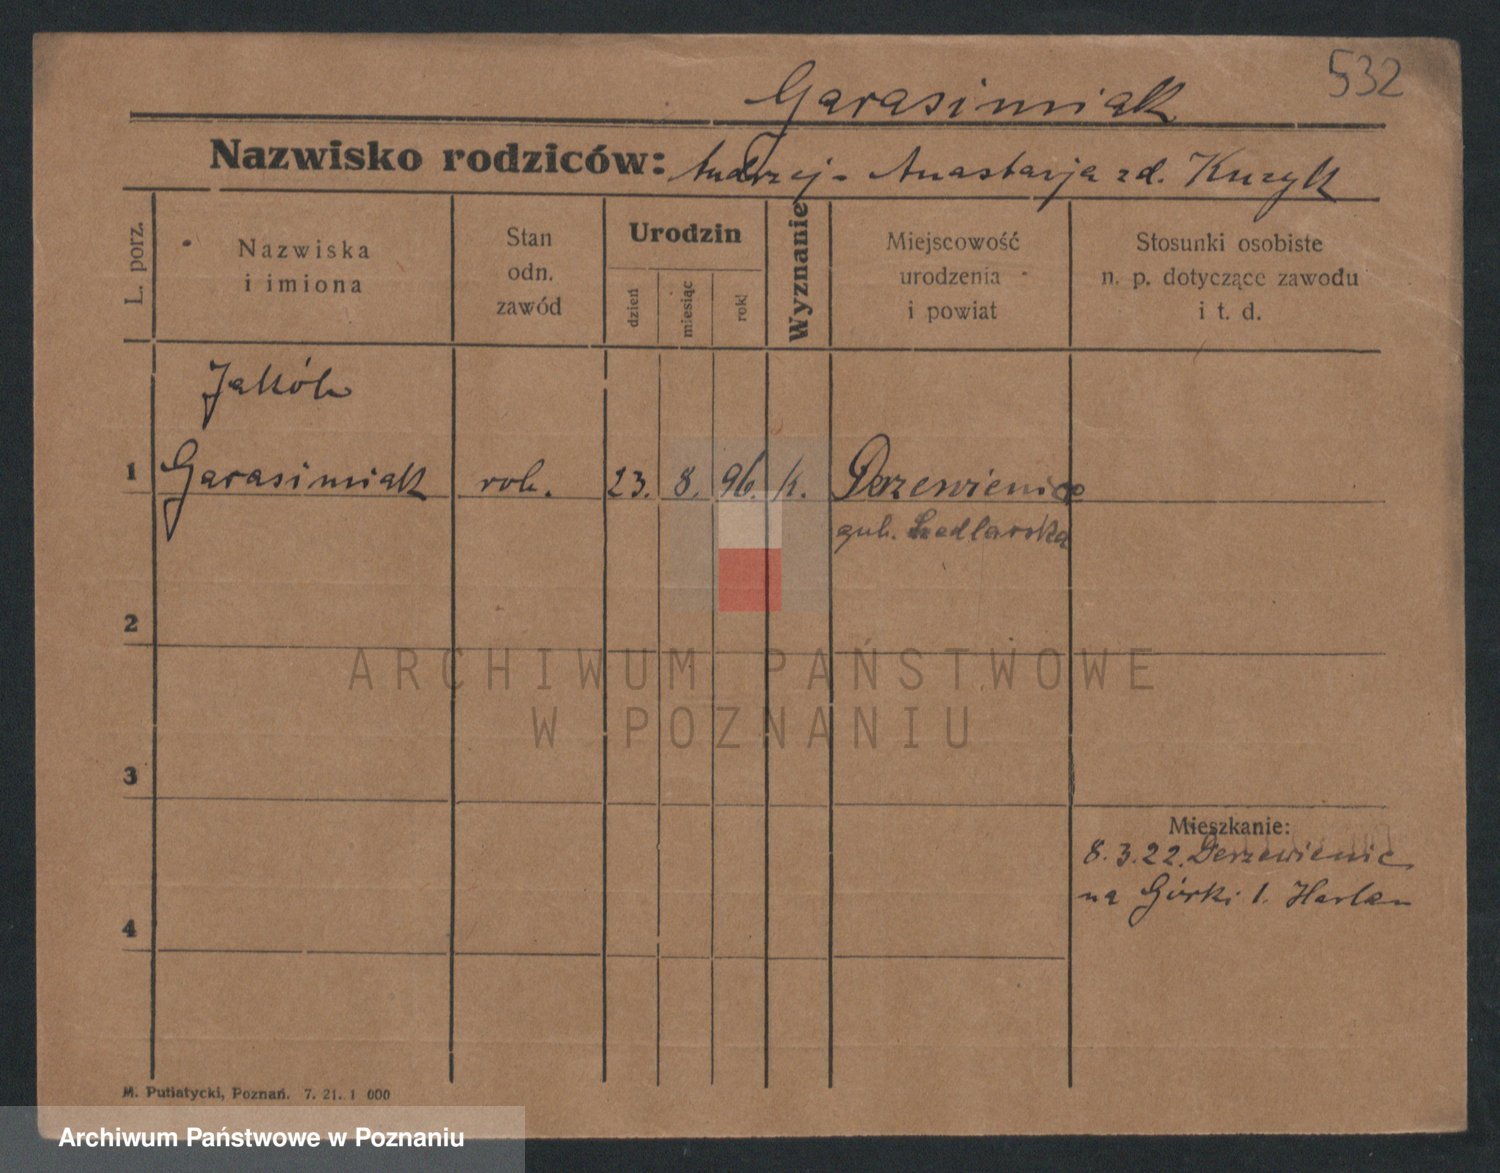 532
Garasimiak
Nazwisko rodziców: Andrzej - Anastazja zd. Kuzyk
L. porz.
Nazwiska
i imiona
Stan
odn.
zawód
Urodzin
dzień
miesiąc
rok
Wyznanie
Miejscowość
urodzenia
i powiat
Stosunki osobiste
n. p. dotyczące zawodu
i t. d.
Jakób
1 Garasimiak rob. 23. 8. 96. k. Derzewienice
gub.
2
3
4
Mieszkanie:
8.3.22. Derzewienic
na Górki 1.
M. Putiatycki, Poznań. 7. 21. 1 000
ARCHIWUM PAŃSTWOWE
W POZNANIU
Archiwum Państwowe w Poznaniu